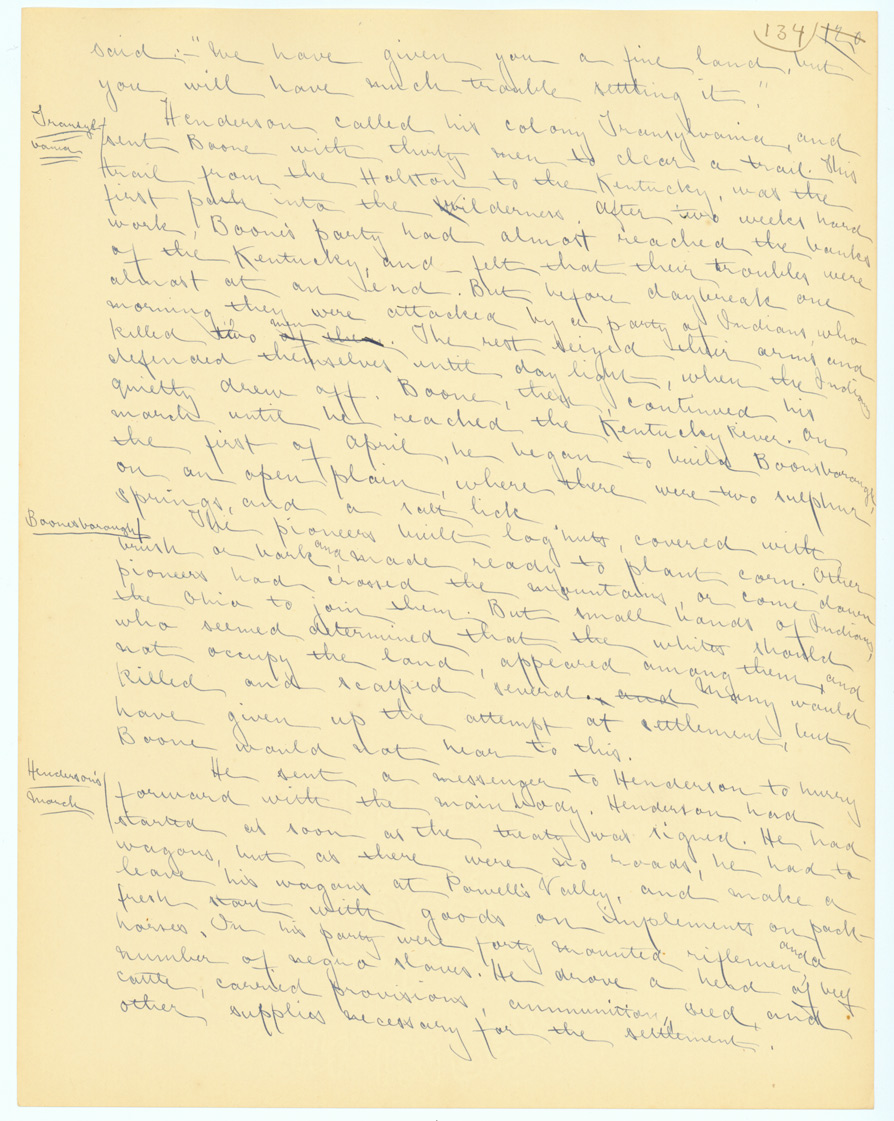 134 126
said:- "We have given you a fine land, but
you will have much trouble settling it."
Transyl-
vania
Henderson called his colony Transylvania, and
sent Boone with thirty men to clear a trail. This
trail from the Holston to the Kentucky, was the
first path into the wilderness. After two weeks hard
work, Boone's party had almost reached the banks
of the Kentucky, and felt that their troubles were
almost at an end. But before daybreak one
morning they were attacked by a party of Indians, who
killed two men of them. The rest seized their arms and
defended themselves until day light, when the Indians
quietly drew off. Boone, then, continued his
march until he reached the Kentucky River. On
the first of April, he began to build Boonsborough,
on an open plain, where there were two sulphur
springs, and a salt lick
Boonesborough
The pioneers built log huts, covered with
brush or bark and made ready to plant corn. Other
pioneers had crossed the mountains, or come down
the Ohio to join them. But small bands of Indians,
who seemed determined that the whites should
not occupy the land, appeared among them, and
killed and scalped several. and Many would
have given up the attempt at settlement, but
Boone would not hear to this.
Henderson's
March
He sent a messenger to Henderson to hurry
forward with the main body. Henderson had
started as soon as the treaty was signed. He had
wagons, but as there were no roads, he had to
leave his wagons at Powell's Valley, and make a
fresh start with goods on implements on pack-
horses. In his party were forty mounted riflemen, and a
number of negro slaves. He drove a herd of beef
cattle, carried provisions, ammunition, seed, and
other supplies necessary for the settlement.